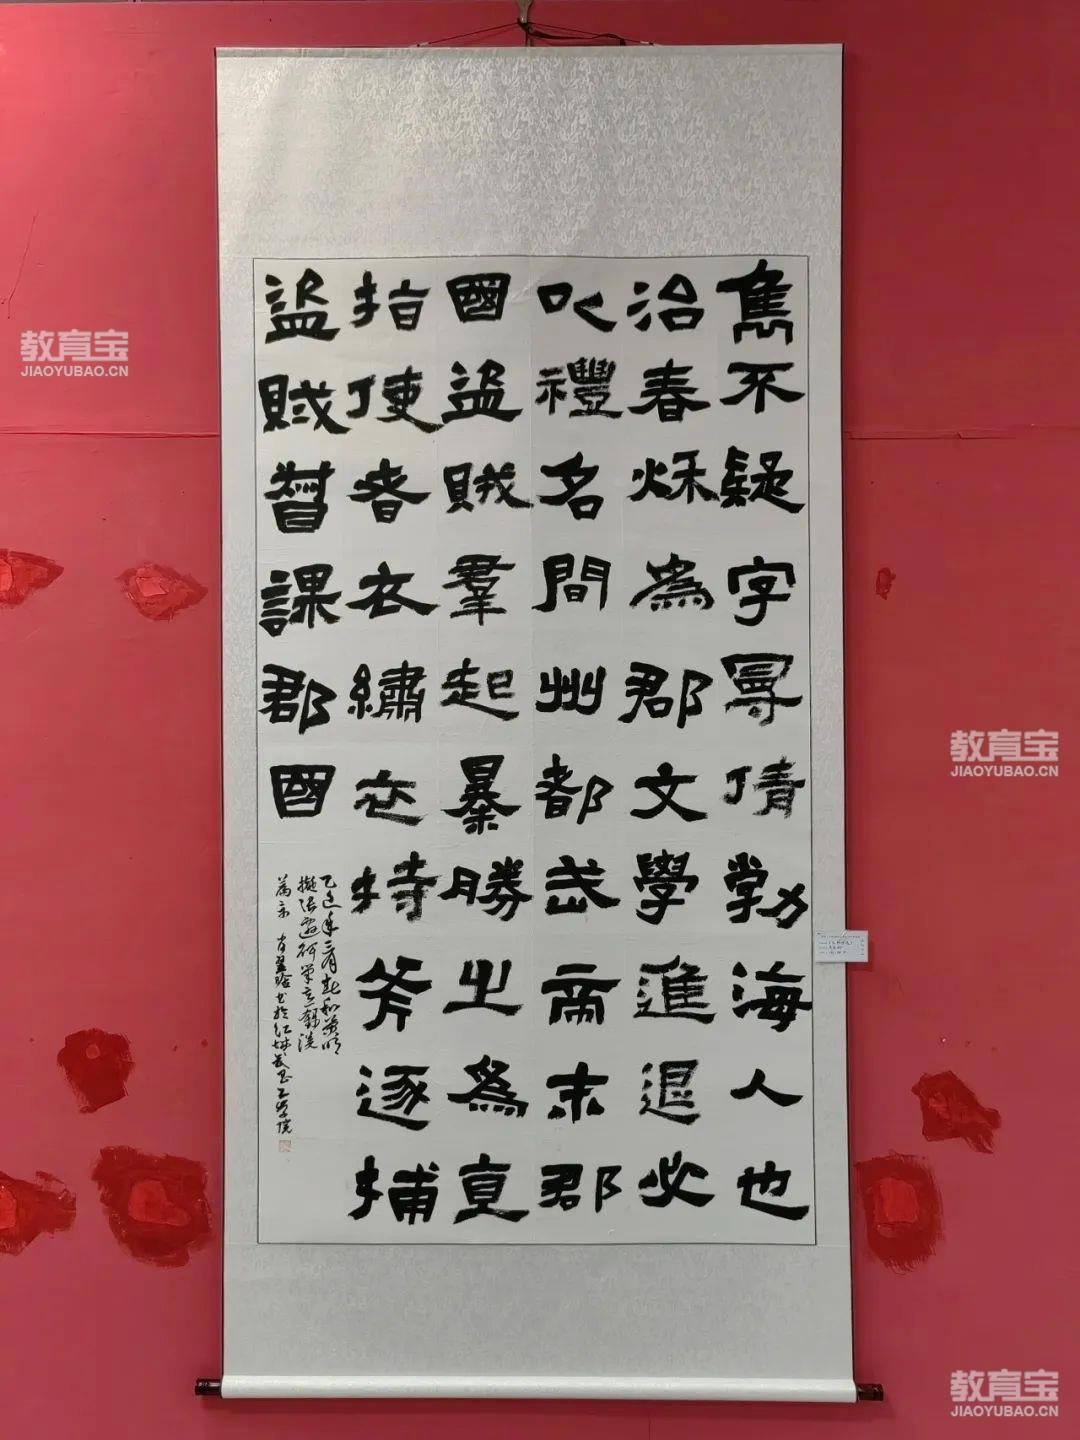 雋不疑字曼倩勃海人也
治春秋為郡文學進退必
以禮名間州都武帝末郡
國盜賊羣起暴勝之為直
指使者衣繡衣持斧逐捕
盜賊督課郡國
乙巳年三月春和景明
擬張遷碑筆意
教育宝
JIAOYUBAO.CN
教育宝
JIAOYUBAO.CN
教育宝
JIAOYUBAO.CN